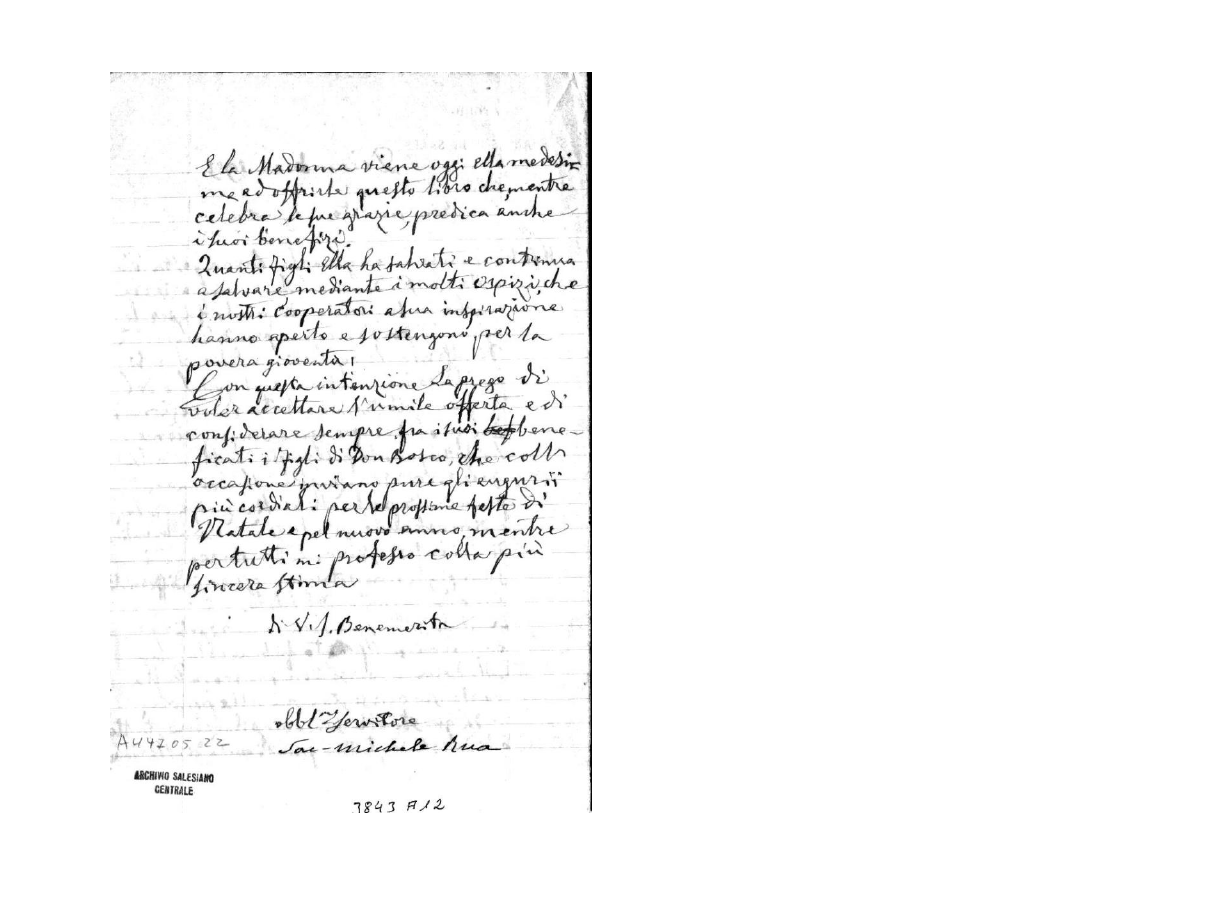 E la Madonna viene oggi ella medesi=
ma ad offrirle questo libro che, mentre
celebra le sue grazie, predica anche
i suoi benefizi.
Quanti figli Ella ha salvati e continua
a salvare mediante i molti ospizi, che
i nostri Cooperatori a sua inspirazione
hanno aperto e sostengono, per la
povera gioventù!
Con questa intenzione La prego di
voler accettare l'umile offerta e di
considerare sempre fra i suoi bene-
ficati i figli di Don Bosco, che coll'
occasione inviano pure gli augurii
più cordiali per le prossime feste di
Natale e pel nuovo anno, mentre
per tutti mi professo colla più
sincera stima
di V. S. Benemerita
obbl.mo Servitore
Sac. Michele Rua
A4420522
ARCHIVIO SALESIANO
CENTRALE
3843 A12